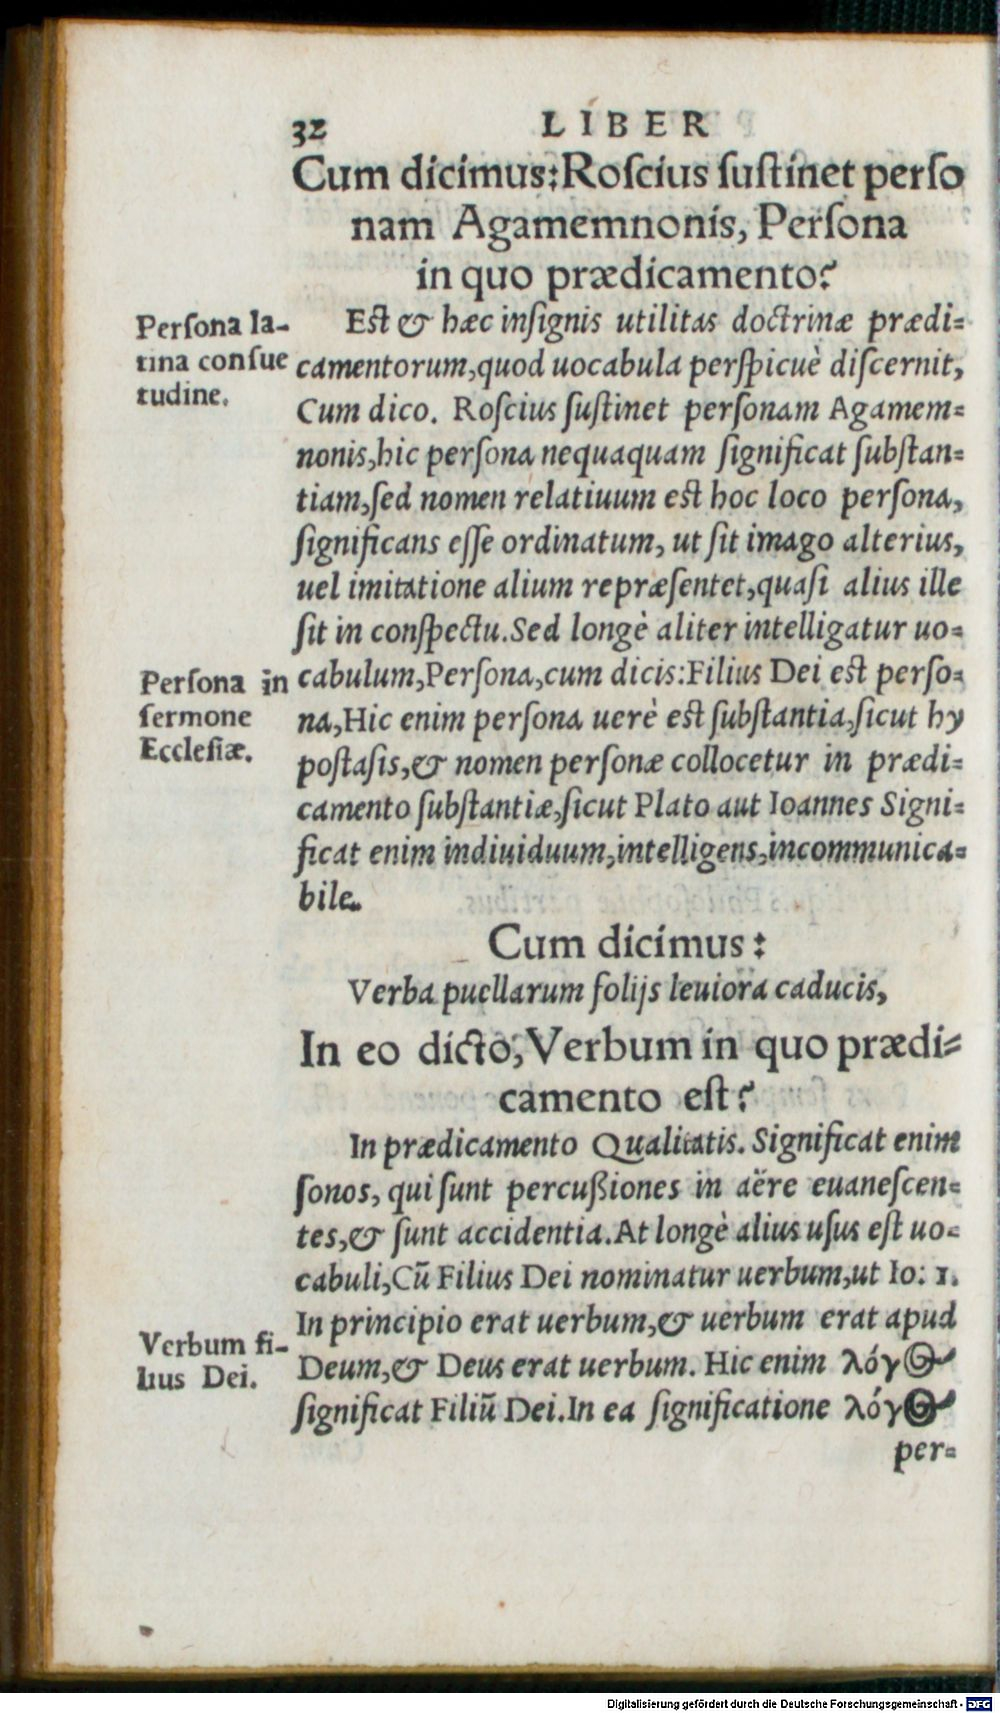 32 LIBER
Cum dicimus: Roſcius ſuſtinet perſo
nam Agamemnonis, Perſona
in quo prædicamento?
Perſona la-
tina conſue
tudine.
Eſt & hæc inſignis utilitas doctrinæ prædi=
camentorum, quod uocabula perſpicuè diſcernit,
Cum dico. Roſcius ſuſtinet perſonam Agamem=
nonis, hic perſona nequaquam ſignificat ſubſtan=
tiam, ſed nomen relatiuum eſt hoc loco perſona,
ſignificans eſſe ordinatum, ut ſit imago alterius,
uel imitatione alium repræſentet, quaſi alius ille
ſit in conſpectu. Sed longè aliter intelligatur uo=
Perſona in
ſermone
Eccleſiæ.
cabulum, Perſona, cum dicis: Filius Dei eſt perſo=
na, Hic enim perſona uerè eſt ſubſtantia, ſicut hy
poſtaſis, & nomen perſonæ collocetur in prædi=
camento ſubſtantiæ, ſicut Plato aut Ioannes Signi=
ficat enim indiuiduum, intelligens, incommunica=
bile.
Cum dicimus:
Verba puellarum folijs leuiora caducis,
In eo dicto, Verbum in quo prædi=
camento eſt?
In prædicamento Qualitatis. Significat enim
ſonos, qui ſunt percußiones in aëre euaneſcen=
tes, & ſunt accidentia. At longè alius uſus eſt uo=
cabuli, Cū Filius Dei nominatur uerbum, ut Io: 1.
In principio erat uerbum, & uerbum erat apud
Verbum fi-
lius Dei.
Deum, & Deus erat uerbum. Hic enim λόγος
ſignificat Filiū Dei. In ea ſignificatione λόγος
per=
Digitalisierung gefördert durch die Deutsche Forschungsgemeinschaft - DFG